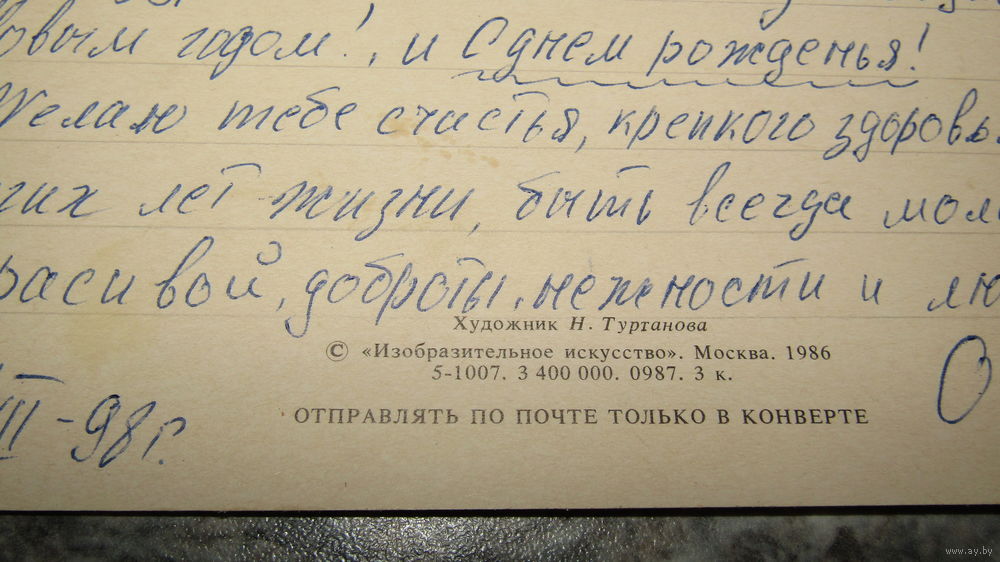 овым годом!, и С днем рожденья!
Желаю тебе счастья, крепкого здоровь
гих лет жизни, быть всегда мол
расивой, доброты, нежности и лю
Художник Н. Туртанова
© «Изобразительное искусство». Москва. 1986
5-1007. 3 400 000. 0987. 3 к.
О
II - 98 г.
ОТПРАВЛЯТЬ ПО ПОЧТЕ ТОЛЬКО В КОНВЕРТЕ
www.ay.by